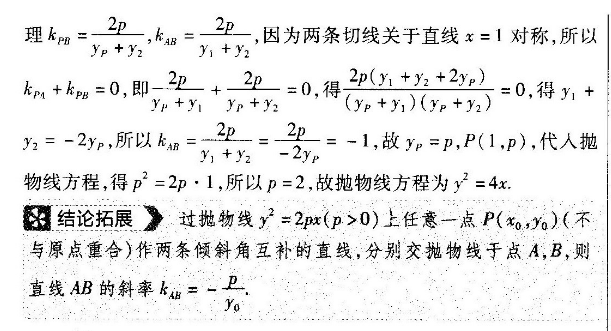 理 $k_{PB}=\frac{2p}{y_P+y_2},k_{AB}=\frac{2p}{y_1+y_2}$,因为两条切线关于直线 x=1 对称,所以
$k_{PA}+k_{PB}=0$,即$\frac{2p}{y_P+y_1}+\frac{2p}{y_P+y_2}=0$,得$\frac{2p(y_1+y_2+2y_P)}{(y_P+y_1)(y_P+y_2)}=0$,得 $y_1+$
$y_2=-2y_P$,所以 $k_{AB}=\frac{2p}{y_1+y_2}=\frac{2p}{-2y_P}=-1$,故 $y_P=p,P(1,p)$,代人抛
物线方程,得 $p^2=2p\cdot1$,所以 $p=2$,故抛物线方程为 $y^2=4x$.
结论拓展 过抛物线 $y^2=2px(p>0)$上任意一点 $P(x_0,y_0)$(不
与原点重合)作两条倾斜角互补的直线,分别交抛物线于点 A,B,则
直线 AB 的斜率 $k_{AB}=-\frac{p}{y_0}$.